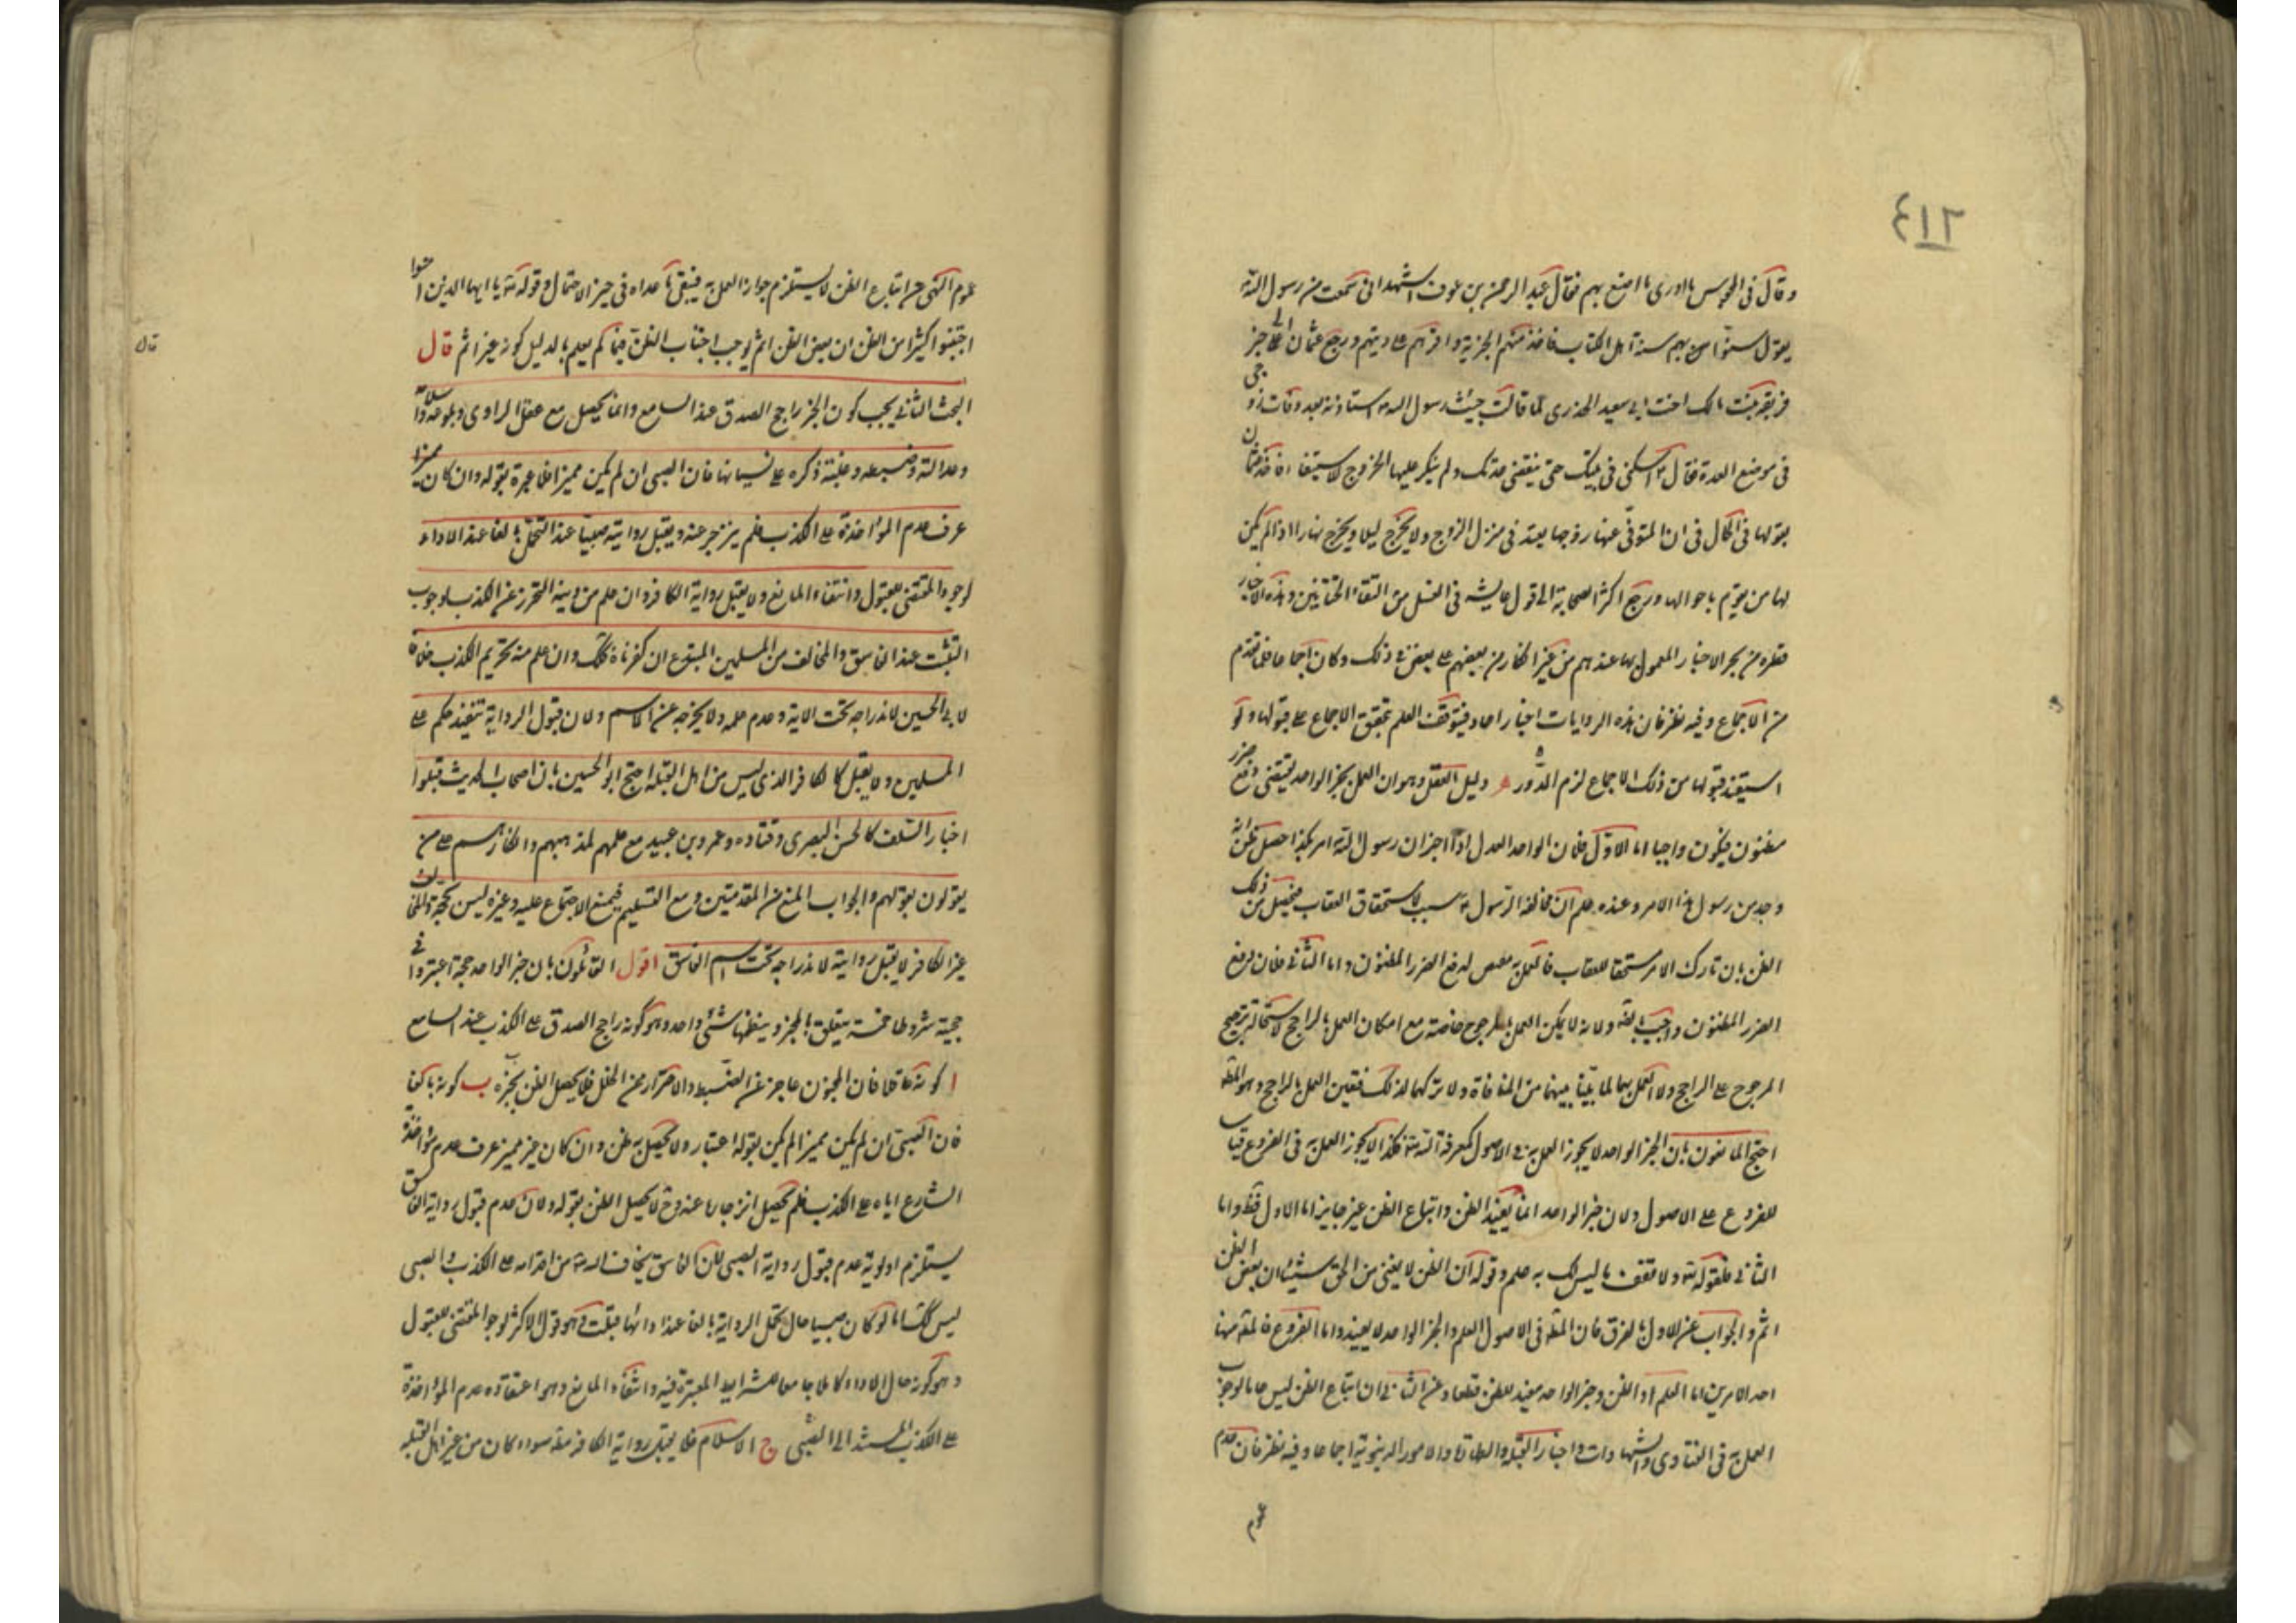 ٤١٢
وقال في المجوس ما ادرى ما اصنع بهم فقال عبد الرحمن بن عوف اشهد انى سمعت من رسول الله
يقول سنوا بهم سنة اهل الكتاب فاخذ منهم الجزية واقرهم على دينهم ورجع عثمان الى خبر
فريعة بنت مالك اخت ابي سعيد الخدرى لما قالت جئت رسول الله ص استاذنه بعد وفات زوجى
فى موضع العدة فقال ص اسكنى فى بيتك حتى ينقضى عدتك ولم ينكر عليها الخروج للاستفتاء فاخذ عثمان
بقولها فى الحال فى ان المتوفى عنها زوجها يعتد فى منزل الزوج ولا يخرج ليلا ويخرج نهارا اذا لم يكن
لها من يقوم باحوالها ورجع اكثر الصحابة الى قول عايشه فى الغسل من التقاء الختانين وهذه الاخبار
قطرة من بحر الاخبار المعمول بها عندهم من غير انكار من بعضهم على بعض فى ذلك وكان اجماعا على ما تقدم
من الاجماع وفيه نظر فان هذه الروايات اخبار احاد فيتوقف العلم بتحقق الاجماع على قبولها ولو
استفيد قبولها من ذلك الاجماع لزم الدور ه دليل العقل وهو ان العمل بخبر الواحد يقتضى دفع ضرر
مظنون فيكون واجبا اما الاول فلان الواحد العدل اذا اخبر ان رسول الله امر بكذا حصل ظن انه
وجد من رسول هذا الامر وعنده علم ان مخالفة الرسول ص سبب لاستحقاق العقاب فيحصل من ذلك
الظن بان تارك الامر مستحقا للعقاب فالعمل به مقتض لدفع الضرر المظنون واما الثانى فلان دفع
الضرر المظنون واجب ولانه لا يمكن العمل بالمرجوح خاصة مع امكان العمل بالراجح لاستحالة ترجيح
المرجوح على الراجح ولا العمل بهما لما بينا بينهما من المنافاة ولا تركهما لذلك فتعين العمل بالراجح وهو المط
احتج المانعون بان الخبر الواحد لا يجوز العمل به فى الاصول كمعرفة الله تع فكذا لا يجوز العمل به فى الفروع قياسا
للفروع على الاصول ولان خبر الواحد انما يفيد الظن واتباع الظن غير جايز اما الاول فظ واما
الثانى فلقوله تع ولا تقف ما ليس لك به علم وقوله ان الظن لا يغنى من الحق شيئا ان بعض الظن
اثم والجواب عن الاول بالفرق فان المط فى الاصول العلم والخبر الواحد لا يفيده واما الفروع فالمط منها
احد الامرين اما العلم او الظن وخبر الواحد مفيد للظن قطعا وعن الثانى ان اتباع الظن ليس عاما لوجوب
العمل به فى الفتاوى والشهادات واخبار القبلة والطهارة والامور الدنيوية اجماعا وفيه نظر فان عدم
عموم
عموم النهى عن اتباع الظن لا يستلزم جواز العمل به فيبقى ما عداه فى حيز الاحتمال وقوله تع يا ايها الذين امنوا
اجتنبوا كثيرا من الظن ان بعض الظن اثم يوجب اجتناب الظن فيما لم يعلم بالدليل كونه غير اثم قال
قال
البحث الثانى يجب كون الخبر راجح الصدق عند السامع وانما يحصل مع عقل الراوى وبلوغه واسلامه
وعدالته وضبطه وغلبة ذكره على نسيانها فان الصبى ان لم يكن مميزا فلا عبرة بقوله وان كان مميزا
عرف عدم المؤاخذة على الكذب فلم ينزجر عنه ويقبل رواية صبيا عند التحمل بالغا عند الاداء
لوجود المقتضى للقبول وانتفاء المانع ولا يقبل رواية الكافر وان علم من دينه التحرز عن الكذب لوجوب
التثبت عند الفاسق والمخالف من المسلمين المبتدع ان كفرناه فكذلك وان علم منه تحريم الكذب خلافا
لابي الحسين لاندراجه تحت الاية وعدم علمه ولا يخرجه عن الاسم ولان قبول الرواية تنفيذ حكم على
المسلمين ولا يقبل كالكافر الذى ليس من اهل القبلة احتج ابو الحسين بان اصحاب الحديث قبلوا
اخبار السلف كالحسن البصرى وقتاده وعمرو بن عبيد مع علمهم بمذهبهم وانكارهم على من
يقولون بقولهم والجواب المنع من المقدمتين ومع التسليم فيمنع الاجتماع عليه وغيره ليس بحجة والمخالف
غير الكافر لا يقبل روايته لاندراجه تحت اسم الفاسق اقول القائلون بان خبر الواحد حجة اعتبروا فى
حجيته شروطا خمسة يتعلق بالمخبر وينظمها شئ واحد وهو كونه راجح الصدق على الكذب عند السامع
ا كونه عاقلا فان المجنون عاجز عن الضبط والاحتراز من الخلل فلا يحصل الظن بخبره ب كونه بالغا
فان الصبى ان لم يكن مميزا لم يكن بقوله اعتبار ولا يحصل به ظن وان كان مميز عرف عدم مؤاخذة
الشارع اياه على الكذب فلم يحصل انزجاره عنه وح لا يحصل الظن بقوله ولان عدم قبول رواية الفاسق
يستلزم اولوية عدم قبول رواية الصبى لان الفاسق يخاف الله تع من اقدامه على الكذب والصبى
ليس كك اما لو كان صبيا حال تحمل الرواية بالغا عند ادائها قبلت وهو قول الاكثر لوجود المقتضى للقبول
وهو كونه حال الاداء كاملا جامعا للشرايط المعتبرة فيه وانتفاء المانع وهو اعتقاده عدم المؤاخذة
على الكذب المستند الى الصبى ج الاسلام فلا يقبل رواية الكافر مط سواء كان من غير اهل القبلة